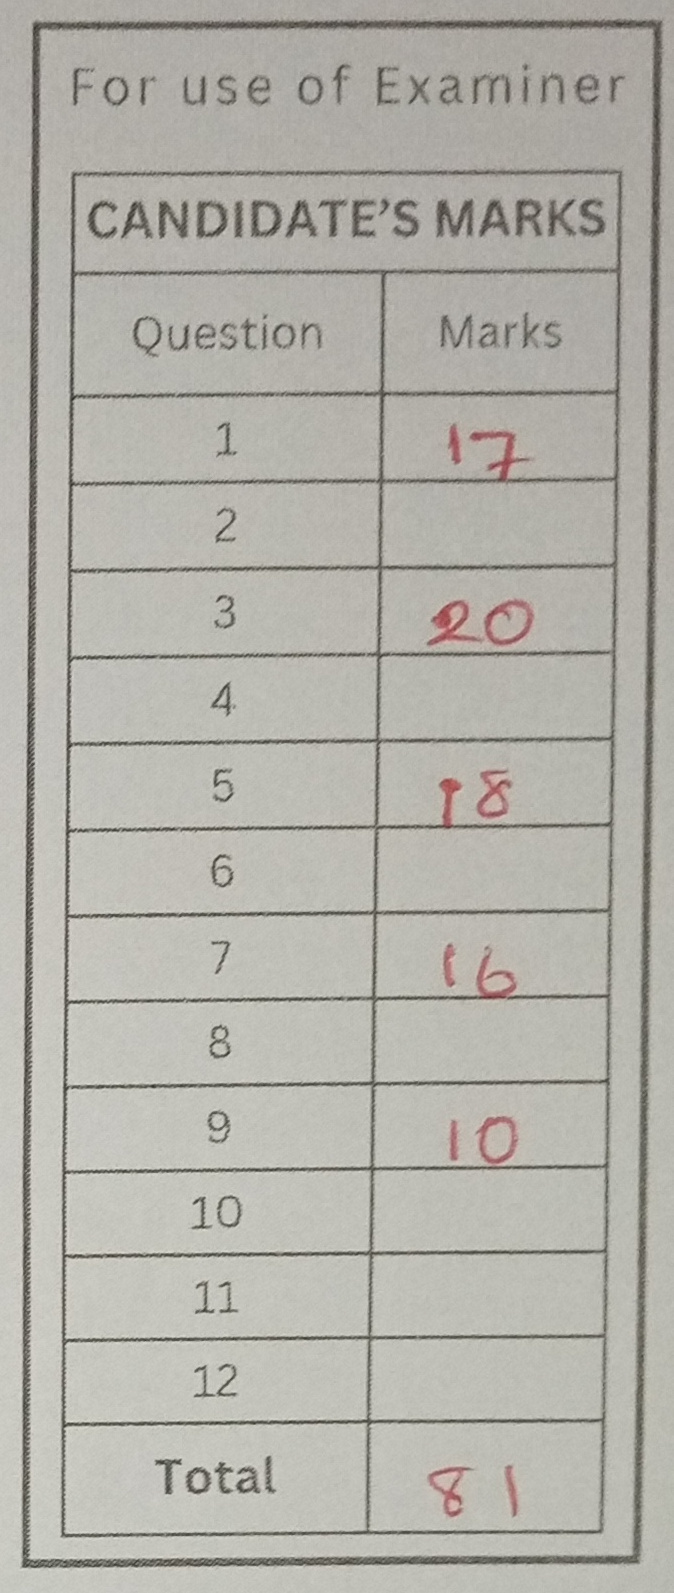 For use of Examiner
CANDIDATE'S MARKS
Question Marks
1 17
2
3 20
4
5 18
6
7 16
8
9 10
10
11
12
Total 81